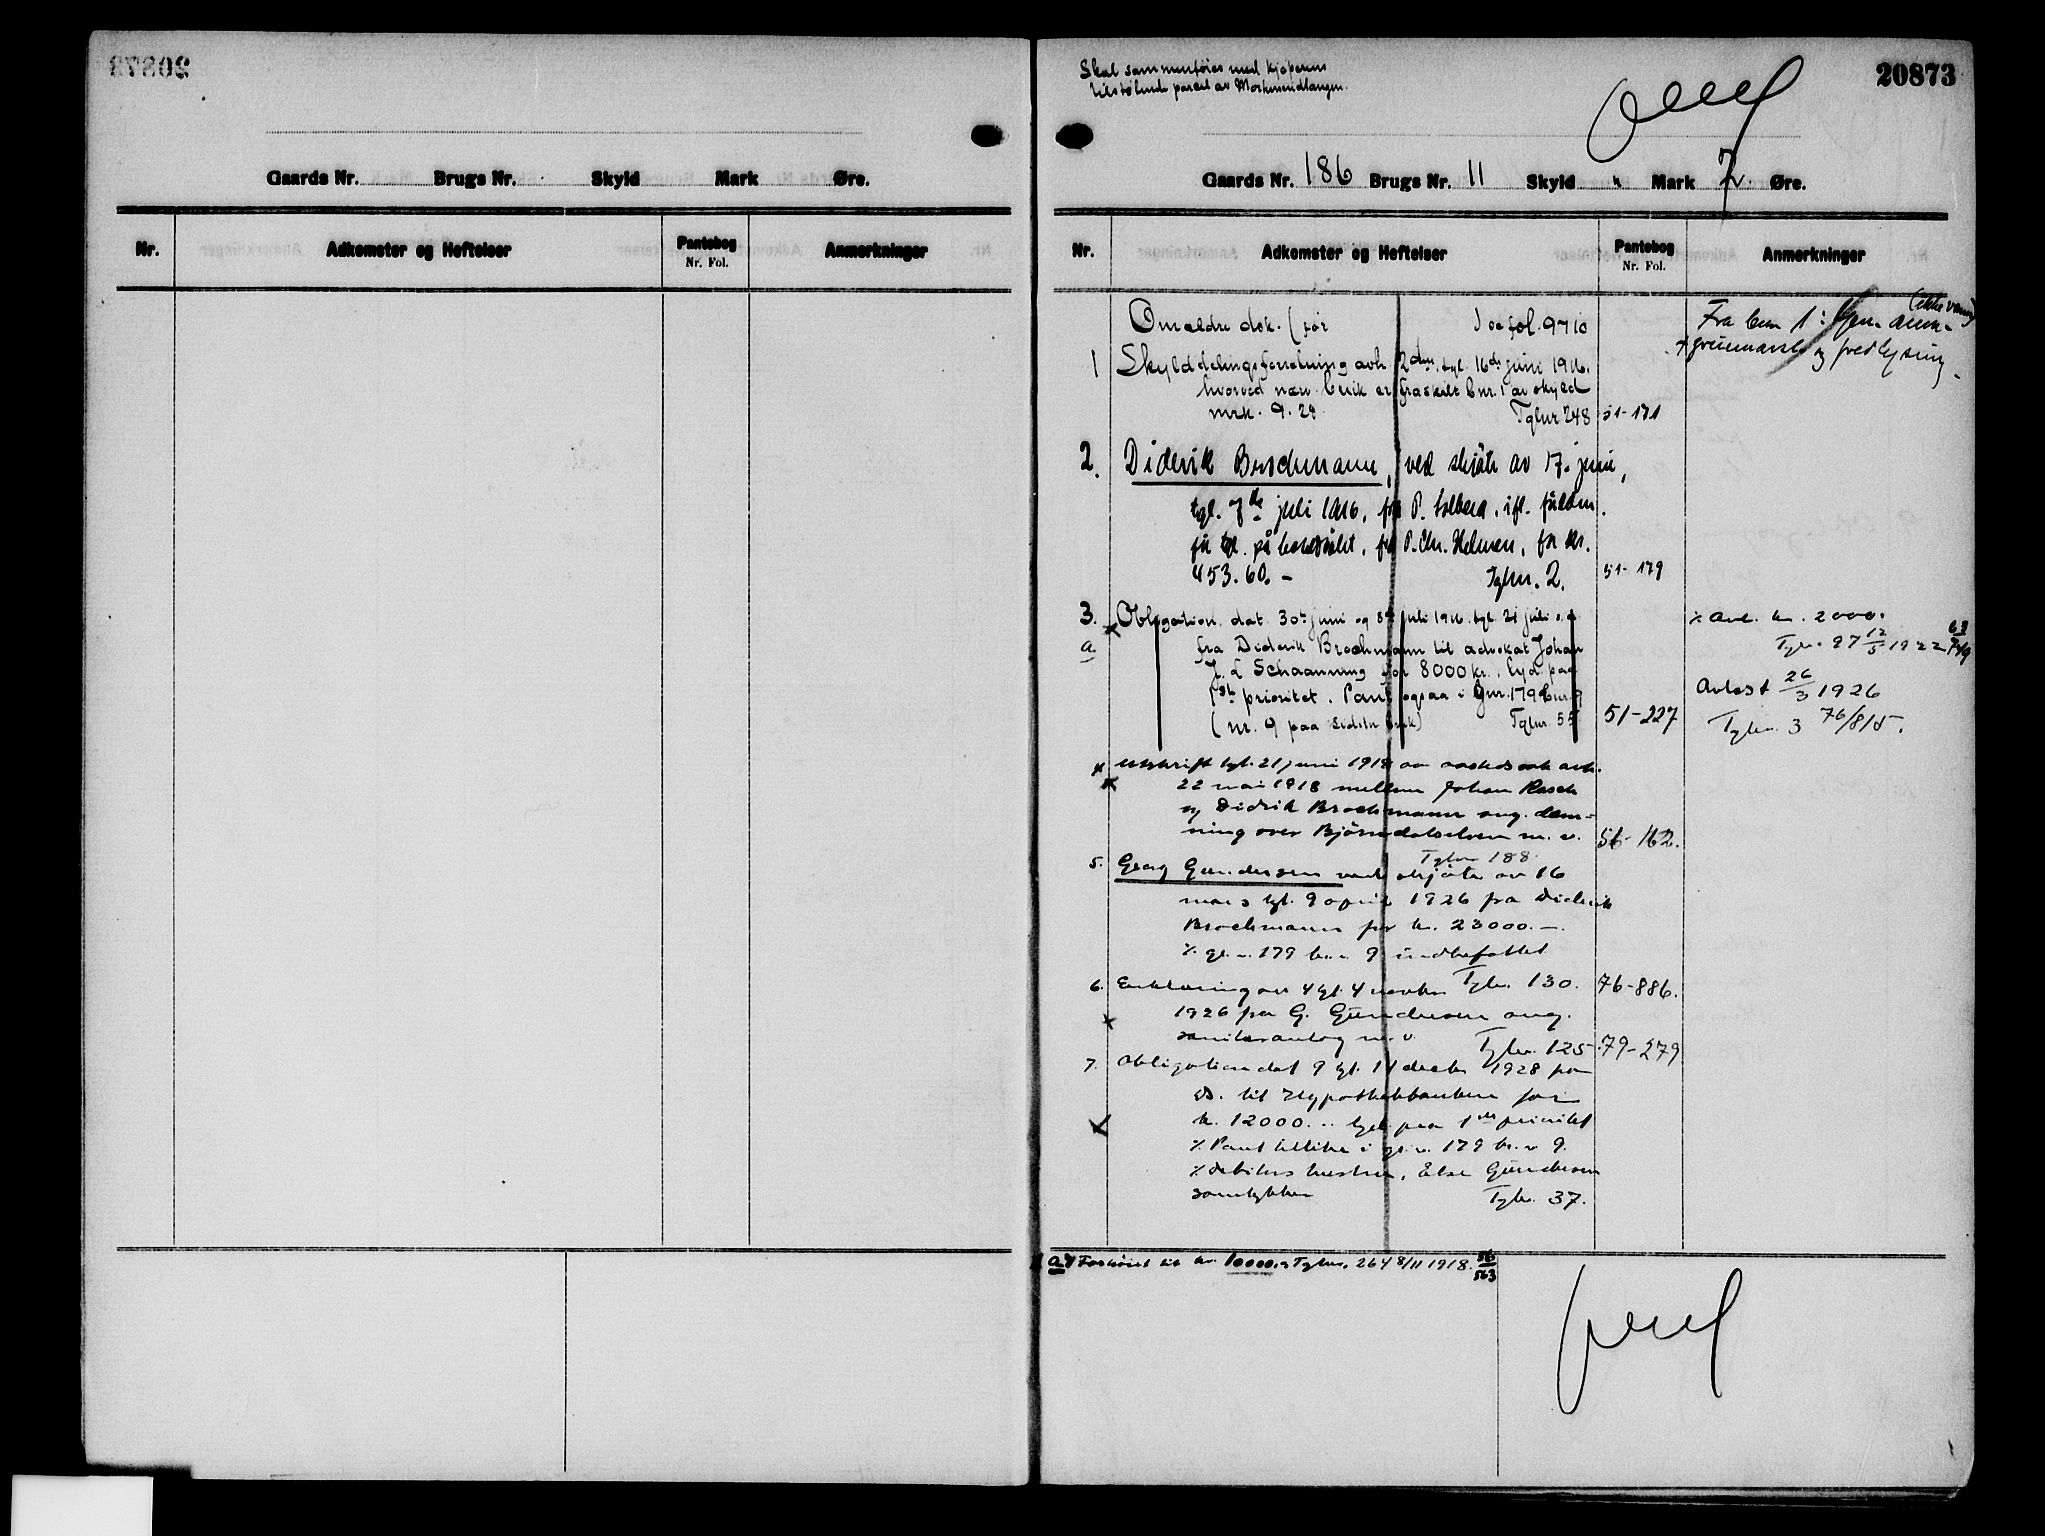 20873
Gaards Nr. Brugs Nr. Skyld Mark Øre.
Nr. Adkomster og Heftelser Pantebog Nr. Fol. Anmerkninger
Skal sammenføies med kjøperens
tilstøtende parcel av
20873
Gaards Nr. 186 Brugs Nr. 11 Skyld " Mark 7 Øre.
Nr. Adkomster og Heftelser Pantebog Nr. Fol. Anmerkninger
Om ældre dok. (før fol. 9710
Fra bnr 1:
og fredlysning
1 Skylddelingsforretning avh. 2den tgl. 16de juni 1916.
hvorved nærv. bruk er fraskilt bnr. 1 av skyld
mrk. 9.29. Tgbnr 248 51-171
2. Diderik Brochmann, ved skjøte av 17. juni,
tgl. 7de juli 1916, fra P. Solberg, ifl. fuldm.
tgl. på hovedbølet, fra P. Chr. Helmen, for kr.
453.60.- Tgbnr. 2. 51-179
3. Obligation dat. 30te juni og 8de juli 1916 tgl. 21 juli s.a.
a fra Diderik Brochmann til advokat Johan
J. L Schaanning for 8000 kr., lyd. paa
1ste prioritet. Pant ogsaa i Gnr. 179 bnr. 9
(nr. 9 paa sidste bruk) Tgbnr. 55 51-227
% Avl. kr. 2000.
Tgbn. 97 12/5 1922 63/749
Avlest 26/3 1926
Tgbn. 3 76/815.
Utskrift tgl. 21 juni 1918 av aastedssak avh.
22 mai 1918 mellem Johan Rasch
og Didrik Brochmann ang. dæm-
ning over Bjørndalselven m.v.
Tgbnr 188. 56-162.
5. Georg Gundersen ved skjøte av 16
mars tgl. 9 april 1926 fra Diderik
Brochmann for kr. 23000.-.
% g.nr. 179 b.nr. 9 indbefattet
Tgbn. 130. 76-886.
6. Erklæring av 4 tgl. 4 novbr
1926 fra G. Gundersen ang.
m.v. Tgbn. 125 79-279
7. Obligation dat 9 tgl. 11 decbr 1928 fra
ds. til Hypothekbanken for
kr. 12000. .. lyd. paa 1ste prioritet
% Pant tillike i g.nr. 179 b.nr. 9.
% Debitors hustru, Else Gundersen
samtykker Tgbn. 37.
a) Forhøiet til kr. 10000. Tgbnr. 264 8/11 1918. 56/563